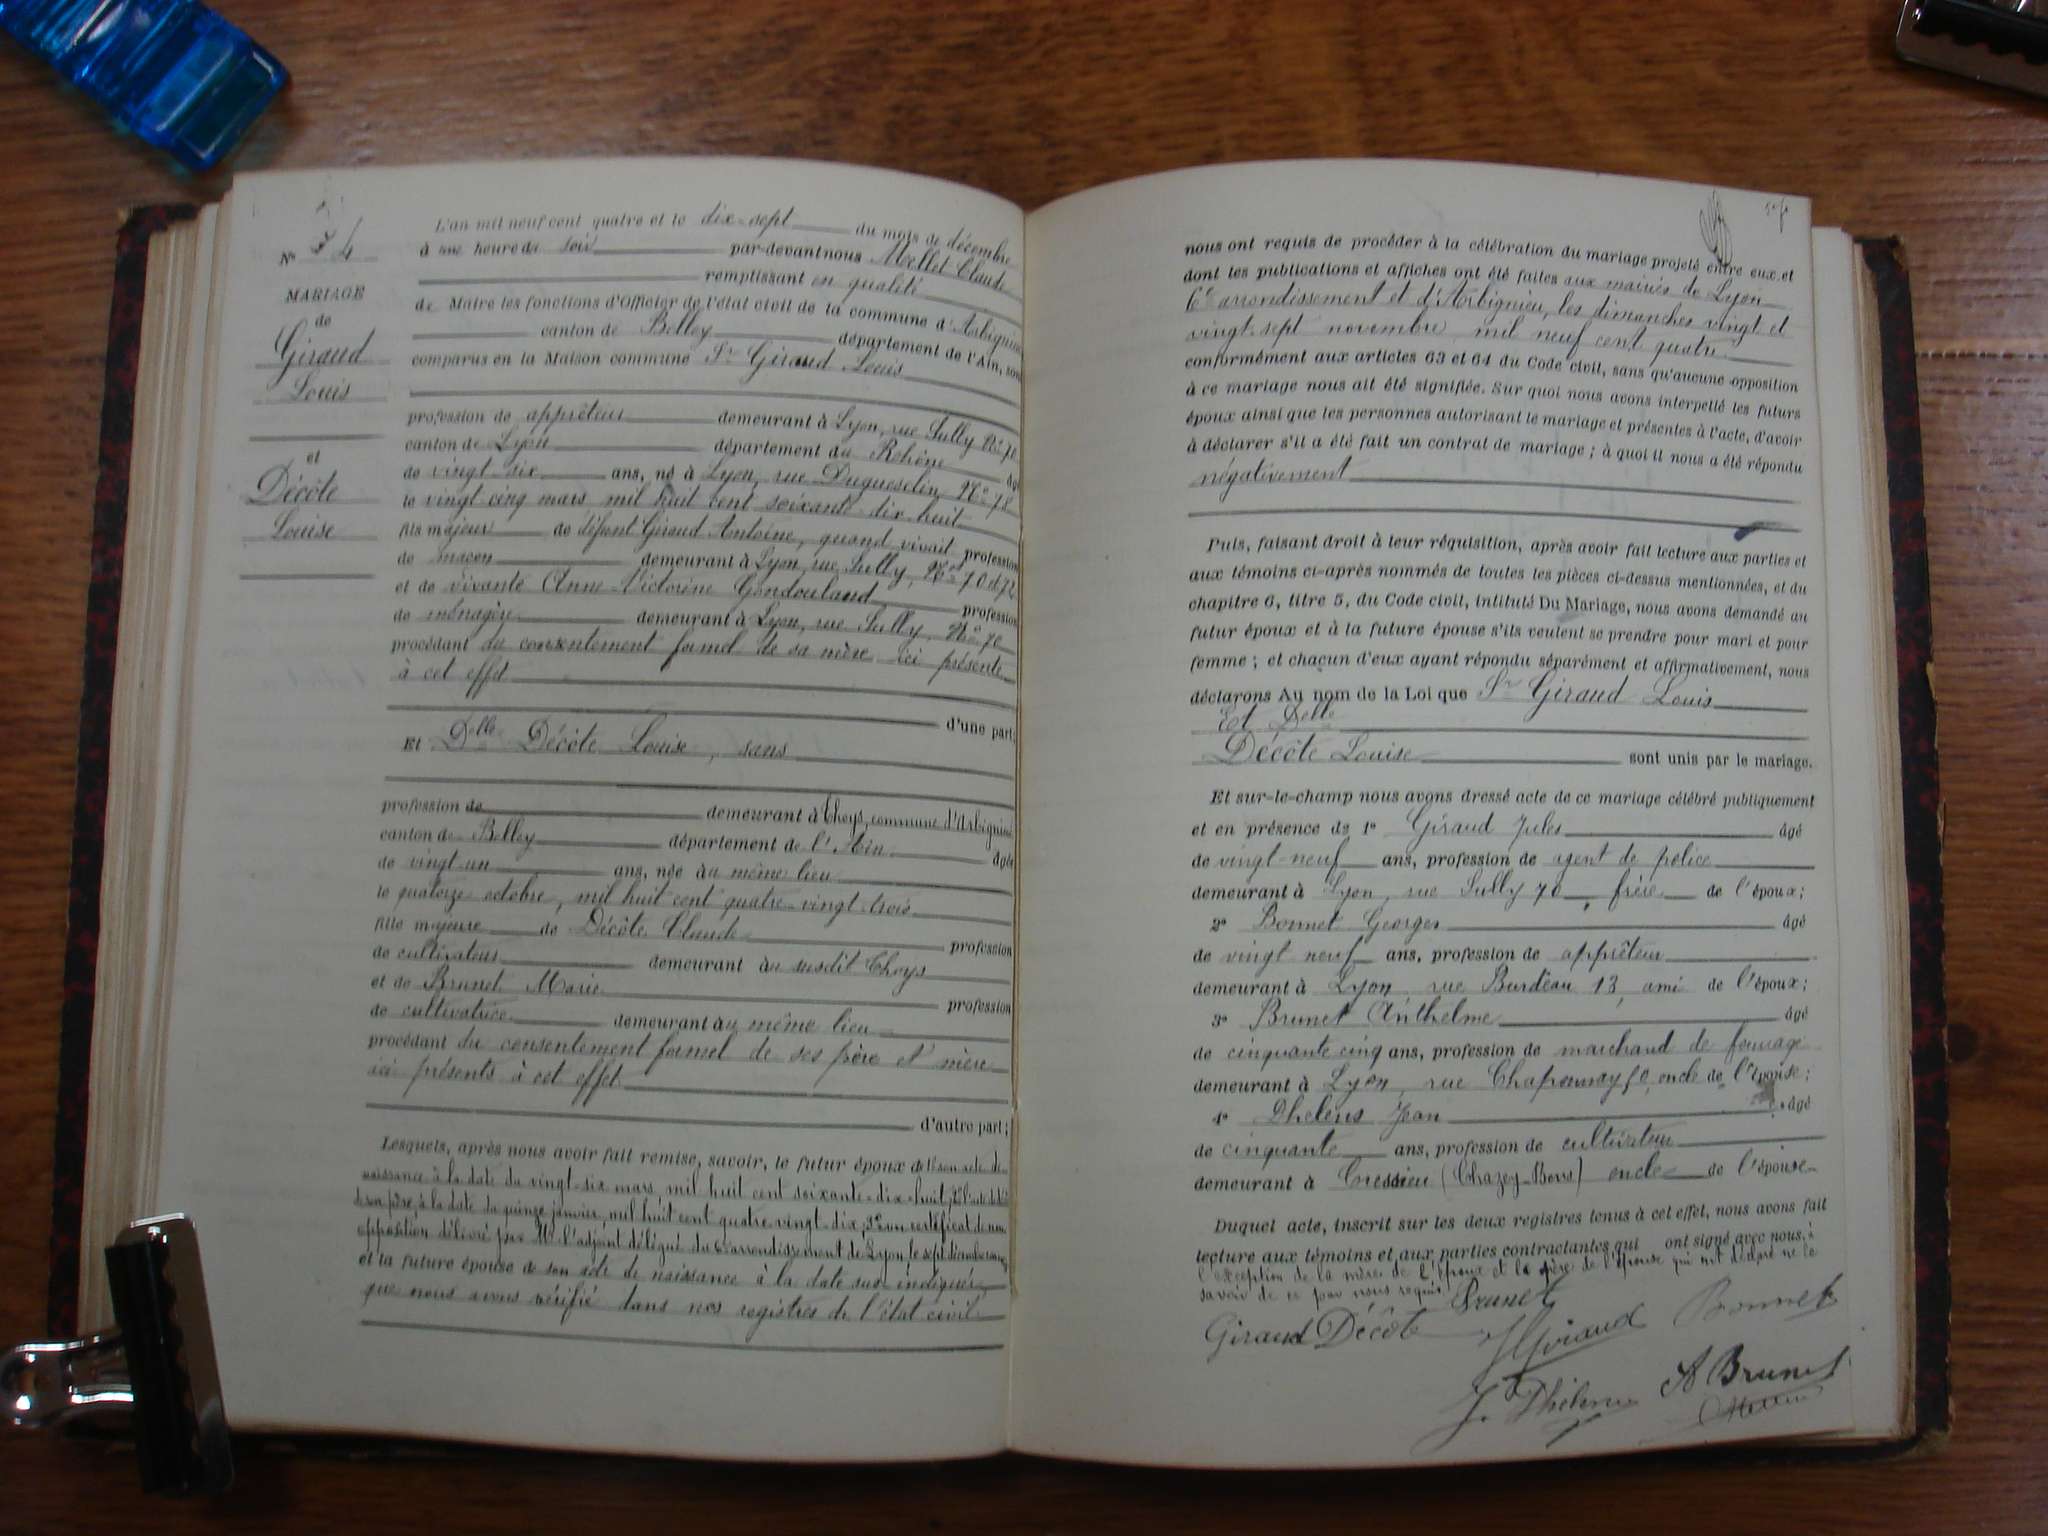 Nº 4
MARIAGE
de
Giraud
Louis
et
Décôte
Louise
L'an mil neuf cent quatre et le dix-sept du mois de décembre
à une heure du soir par-devant nous Mellet Claude
remplissant en qualité
de Maire les fonctions d'Officier de l'état civil de la commune d'Arbignieu
canton de Belley département de l'Ain, sont
comparus en la Maison commune Sr Giraud Louis
profession de apprêteur demeurant à Lyon, rue Sully Nº 70
canton de Lyon département du Rhône âgé
de vingt six ans, né à Lyon, rue Duguesclin, Nº 78
le vingt cinq mars mil huit cent soixante-dix-huit
fils majeur de défunt Giraud Antoine, quand vivait profession
de maçon demeurant à Lyon, rue Sully, Nos 70 et 72
et de vivante Anne-Victorine Gondouland profession
de ménagère demeurant à Lyon, rue Sully, Nº 70
procédant du consentement formel de sa mère ici présente
à cet effet
d'une part;
Et Delle Décôte Louise, sans
profession de demeurant à Thoys, commune d'Arbignieu
canton de Belley département de l'Ain âgée
de vingt-un ans, née au même lieu
le quatorze octobre, mil huit cent quatre-vingt-trois
fille majeure de Décôte Claude profession
de cultivateur demeurant au susdit Thoys
et de Brunet Marie profession
de cultivatrice demeurant au même lieu
procédant du consentement formel de ses père et mère
ici présents à cet effet
d'autre part;
Lesquels, après nous avoir fait remise, savoir, le futur époux de 1º son acte de
naissance à la date du vingt-six mars, mil huit cent soixante-dix-huit, 2º l'acte de décès
de son père, à la date du quinze janvier, mil huit cent quatre-vingt-dix; 3º un certificat de non
opposition délivré par Mr l'adjoint délégué du 6e arrondissement de Lyon le sept décembre courant
et la future épouse de son acte de naissance à la date sus-indiquée,
que nous avons vérifié dans nos registres de l'état civil.
nous ont requis de procéder à la célébration du mariage projeté entre eux et
dont les publications et affiches ont été faites aux mairies de Lyon
6e arrondissement et d'Arbignieu, les dimanches vingt et
vingt-sept novembre mil neuf cent quatre
conformément aux articles 63 et 64 du Code civil, sans qu'aucune opposition
à ce mariage nous ait été signifiée. Sur quoi nous avons interpellé les futurs
époux ainsi que les personnes autorisant le mariage et présentes à l'acte, d'avoir
à déclarer s'il a été fait un contrat de mariage; à quoi il nous a été répondu
négativement
Puis, faisant droit à leur réquisition, après avoir fait lecture aux parties et
aux témoins ci-après nommés de toutes les pièces ci-dessus mentionnées, et du
chapitre 6, titre 5, du Code civil, intitulé Du Mariage, nous avons demandé au
futur époux et à la future épouse s'ils veulent se prendre pour mari et pour
femme; et chacun d'eux ayant répondu séparément et affirmativement, nous
déclarons Au nom de la Loi que Sr Giraud Louis
Et Delle
Décôte Louise sont unis par le mariage.
Et sur-le-champ nous avons dressé acte de ce mariage célébré publiquement
et en présence de 1º Giraud Jules âgé
de vingt-neuf ans, profession de agent de police
demeurant à Lyon, rue Sully 70 frère de l'époux;
2º Bonnet Georges âgé
de vingt neuf ans, profession de apprêteur
demeurant à Lyon rue Burdeau 13, ami de l'époux;
3º Brunet Anthelme âgé
de cinquante cinq ans, profession de marchand de fourrage
demeurant à Lyon, rue Chaponnay 50, oncle de l'épouse;
4º Thelens Jean âgé
de cinquante ans, profession de cultivateur
demeurant à Cressieu (Chazey-Bons) oncle de l'épouse
Duquel acte, inscrit sur les deux registres tenus à cet effet, nous avons fait
lecture aux témoins et aux parties contractantes qui ont signé avec nous, à
l'exception de la mère de l'époux et le père de l'épouse qui ont déclaré ne le
savoir de ce par nous requis.
Brunet
Giraud Décôte J Giraud Bonnet
A Brunet